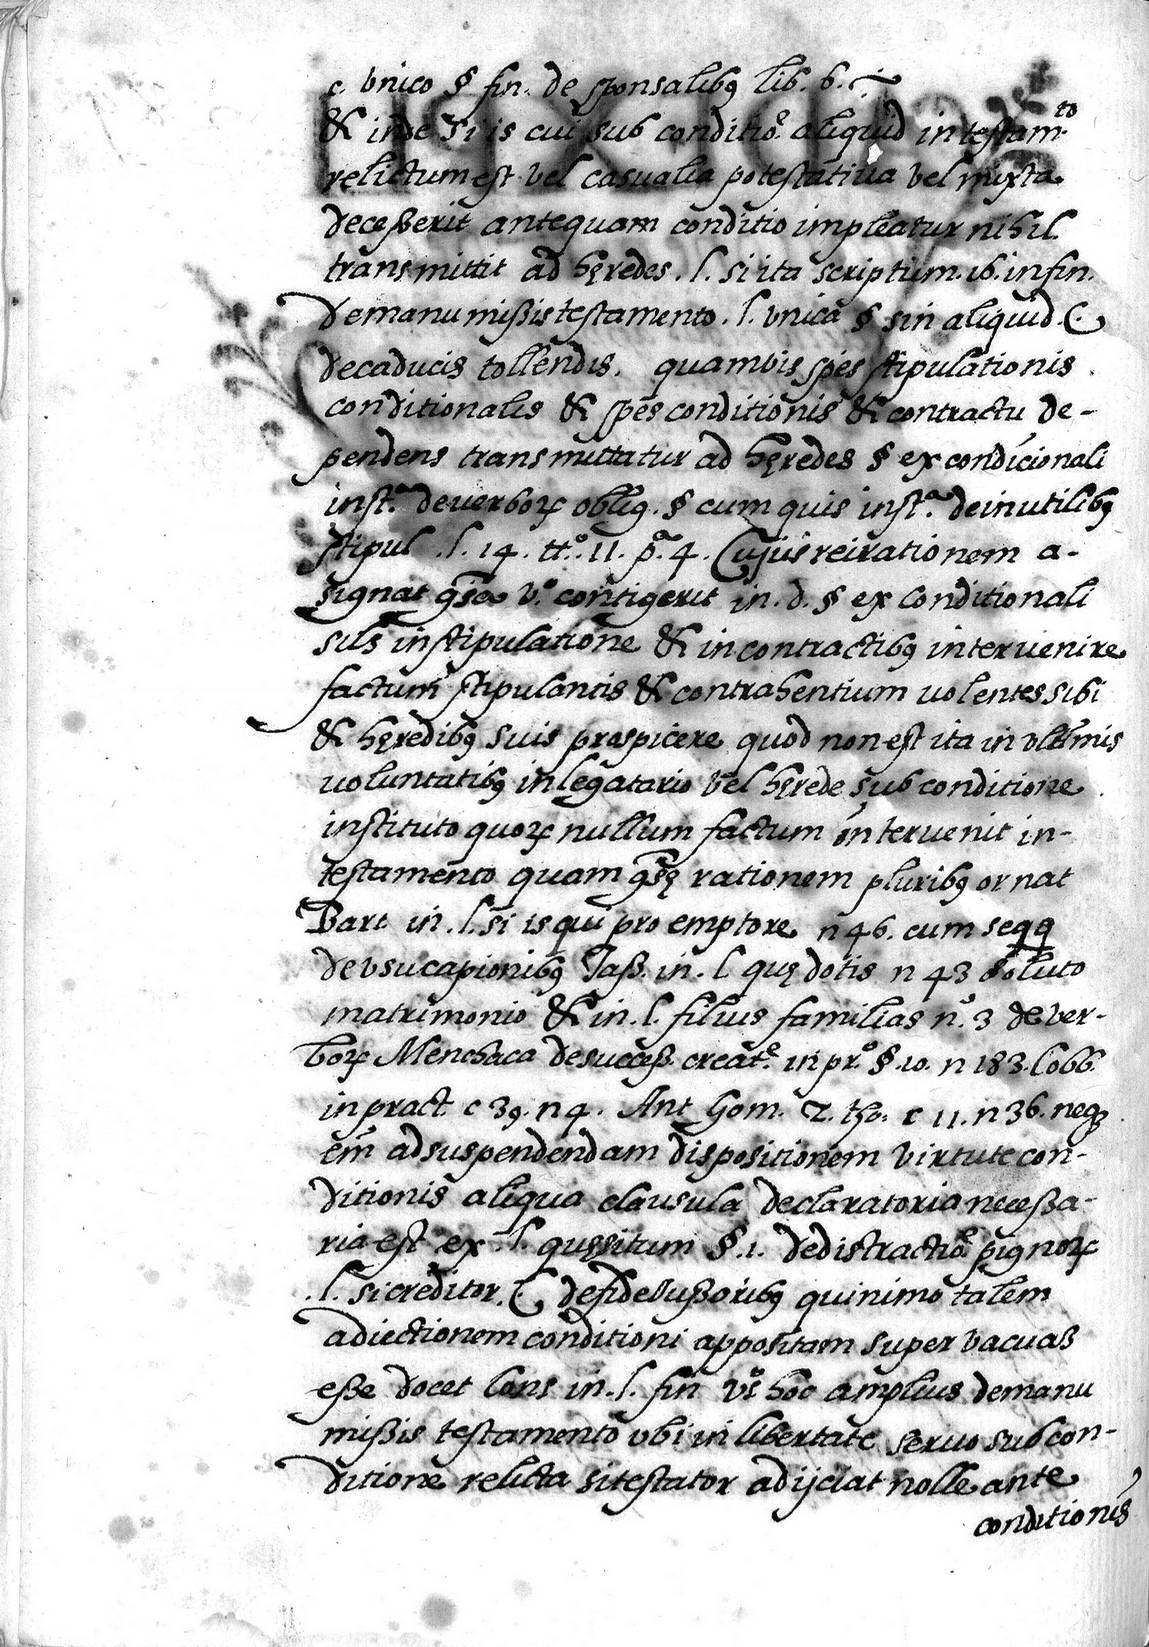 c. vnico § fin. de sponsalibꝰ lib. 6.
& inde si is cui sub conditiōe aliquid in testamto
relictum est vel casualia potestatiua vel mixta
deceßerit antequam conditio impleatur nihil
transmittit ad hęredes. l. si ita scriptum. 16. in fin.
de manumißis testamento. l. vnica § sin aliquid. C
de caducis tollendis. quamvis spēs stipulationis
conditionalis & spēs conditionis & contractu de-
pendens transmittatur ad hęredes § ex condicionali
inst.ª de verboꝝ oblig. § cum quis inst.ª de inutilibꝰ
stipul. l. 14. tt.º 11. pª. 4. Cujus rei rationem a-
signat v.º contigerit in. d. § ex conditionali
in stipulatione & in contractibꝰ interuenire
factum stipulantis & contrahentium uolentes sibi
& hęredibꝰ suis prospicere quod non est ita in vltimis
voluntatibꝰ in legatario vel hęrede sub conditione
instituto quoꝝ nullum factum intervenit in-
testamento quam rationem pluribꝰ ornat
Bart. in. l. si is qui pro emptore n 46. cum seqq
de vsucapionibꝰ Jaß. in. l quę dotis n 43 soluto
matrimonio & in. l. filius familias nº. 3 de ver-
boꝝ Menchaca de succeß. creatº. in prº. §. 10. n 183. Cobb.
in pract c 39. n 4. Ant Gom. c 11. n 36. neqꝫ
em̄ ad suspendendam dispositionem virtute con-
ditionis aliqua clausula declaratoria neceßa-
ria est ex. l. quęsitum §. 1. de distractiōe pignoꝝ
.l. si creditor. C de fideiußoribꝰ quinimo talem
adiectionem conditioni appositam super vacuaß
eße docet Cons in. l. fin vº hoc amplius de manu
mißis testamento vbi in libertate seruo sub con-
ditione relicta si testator adijciat nolle ante
conditionis